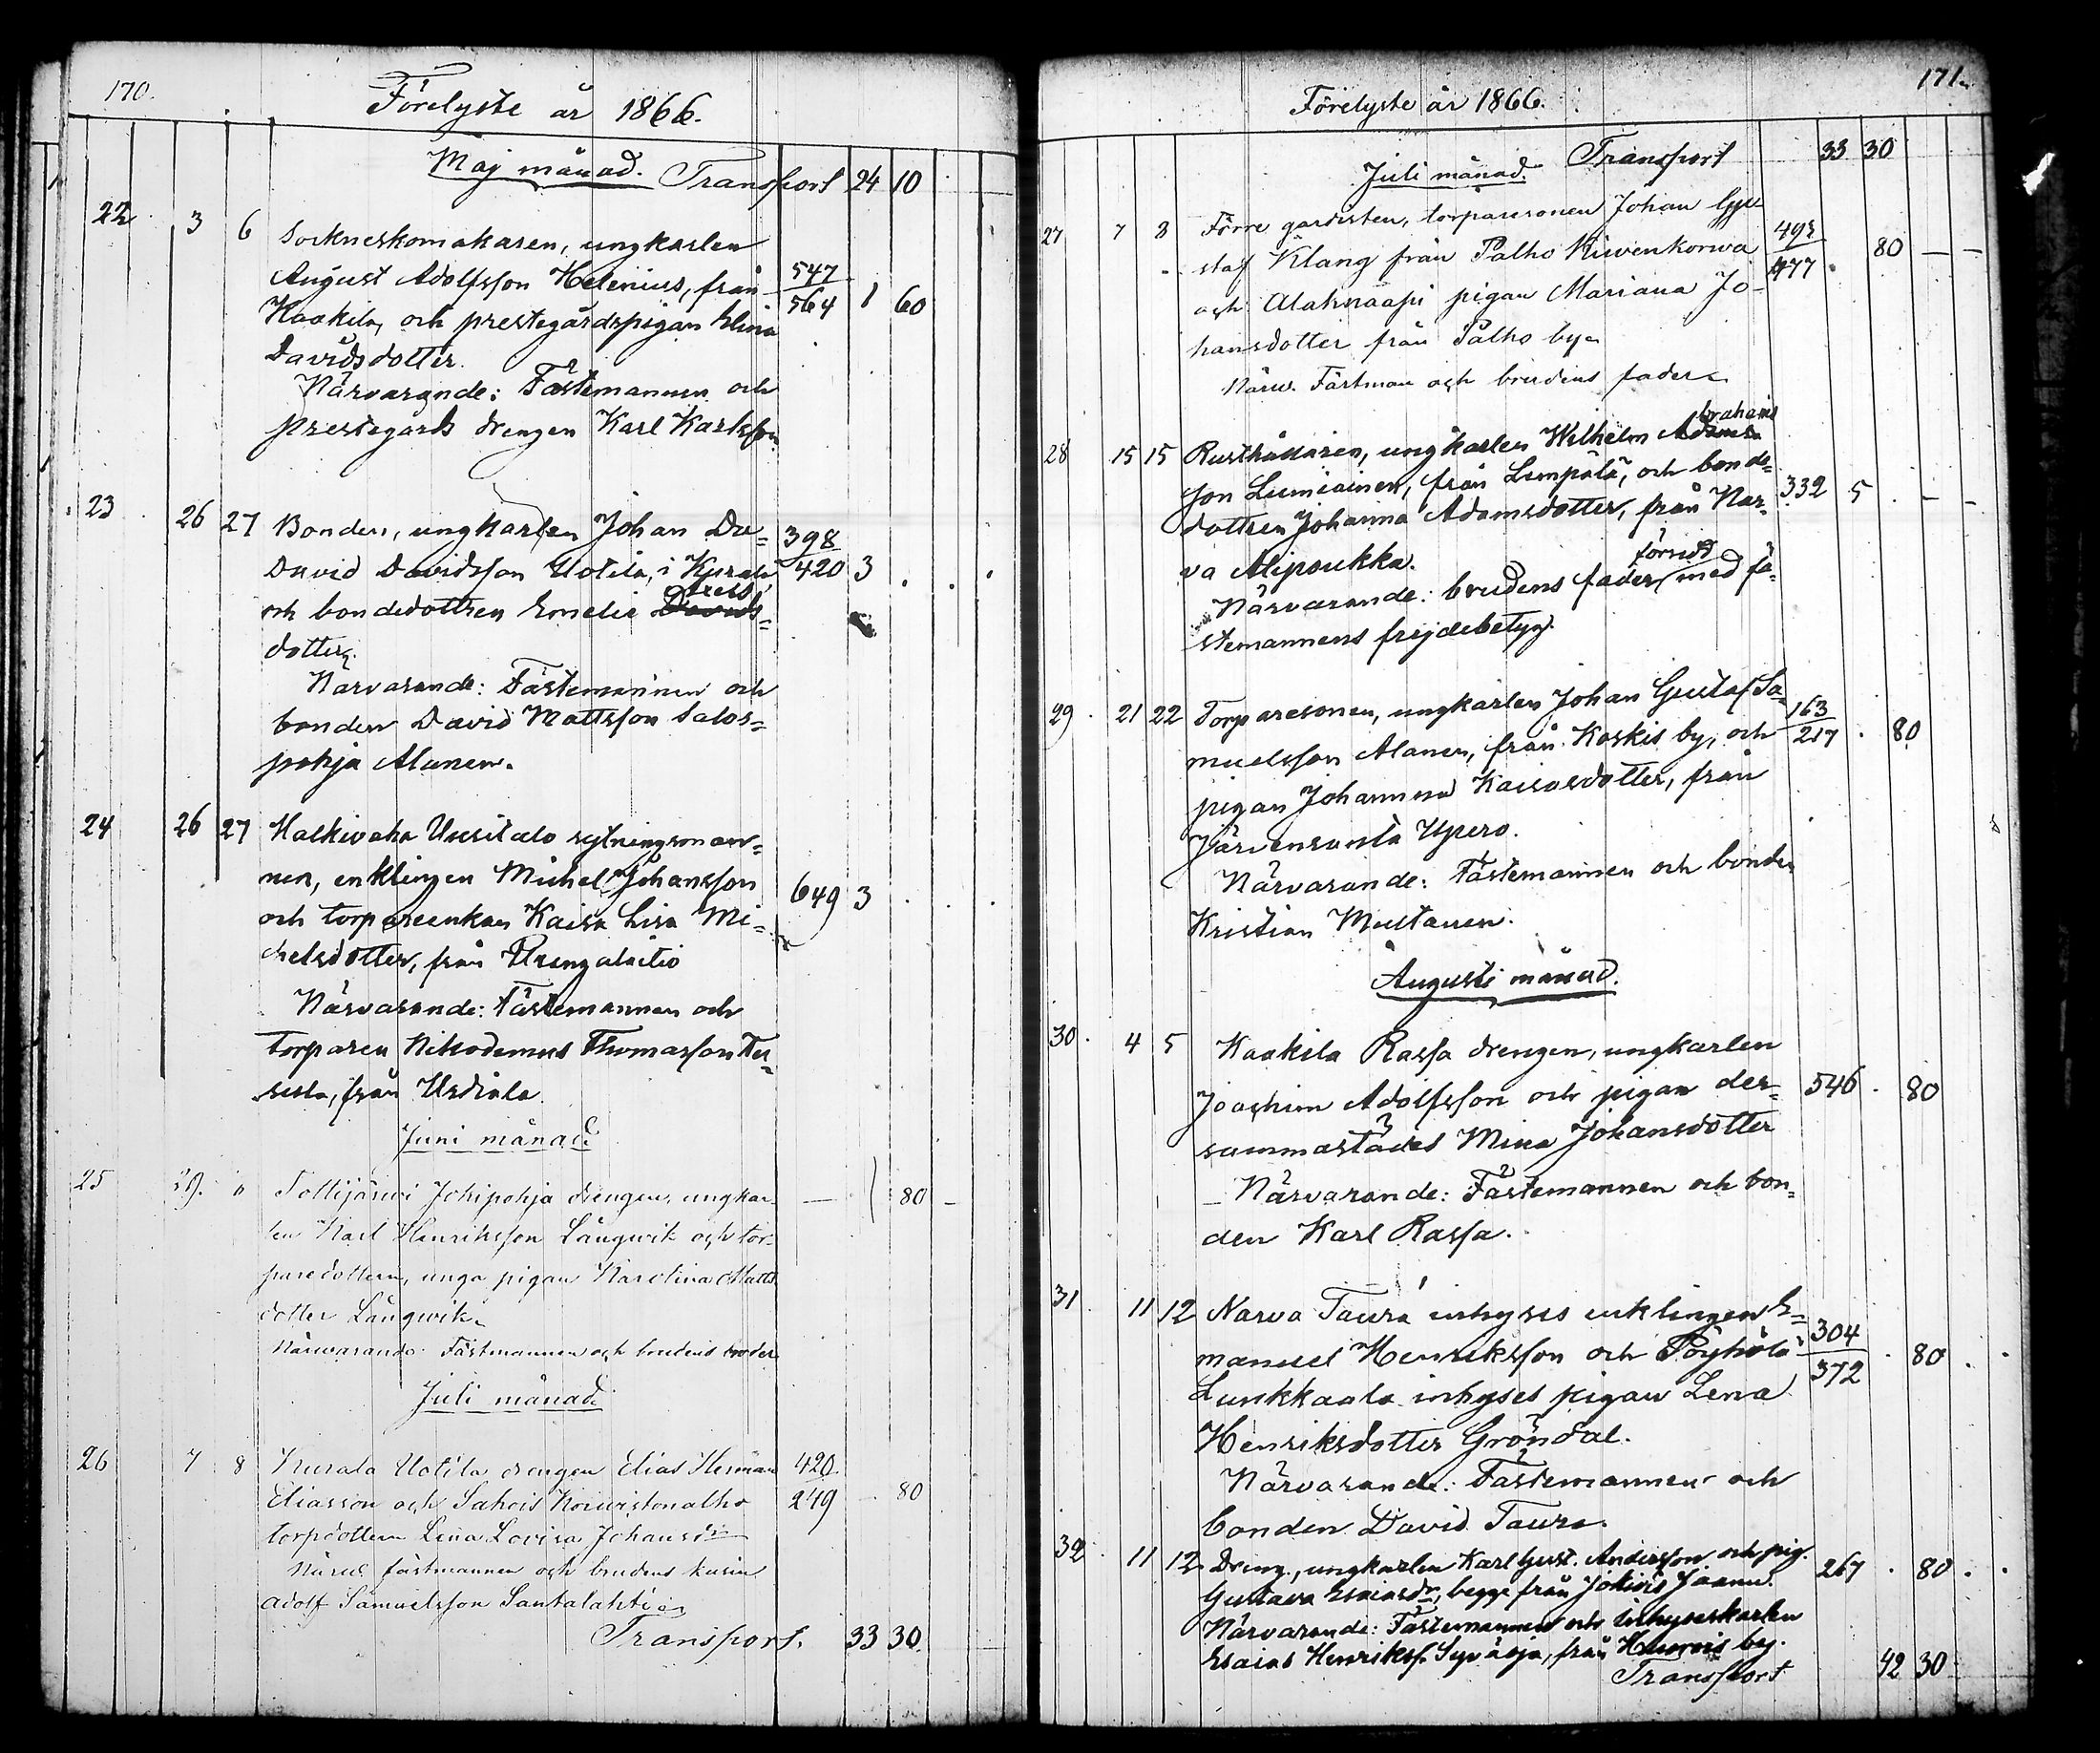 170.
Förelyste år 1866.
Maj månad. Transport 24 10
22 3 6 Sockneskomakaren, ungkarlen
August Adolfsson Helenius, från 547
Kaakila, och prestegårdspigan Elina 564 1 60
Davidsdotter.
Närvarande: Fästemannen och
prestegårds drengen Karl Karlsson
23 26 27 Bonden, ungkarlen Johan Da= 398
David Davidsson Uotila, i Kurala 420 3
och bondedottren Emelie Davids=
dotter.
Närvarande: Fästemannen och
bonden David Mattsson Salos=
pohja Alanen.
24 26 27 Halkivaha Uusitalo sytningsman=
nen, enklingen Michel Johansson 649 3
och torpareenkan Kaisa Lisa Mi=
chelsdotter, från
Närvarande: Fästemannen och
torparen Nikodemus Thomasson
från Urdiala
Juni månad
25 29. " Tottijärwi Jokipohja drengen, ungkar- — 80 -
len Karl Henriksson Långwik och tor-
paredottern, unga pigan Karolina Matts
dotter Långwik
Närwarande: Fästmannen och brudens broder
Juli månad
26 7 8 Kurala Uotila drengen Elias Herman 420
Eliasson och Sahois 249 80
torpdottern Lena Lovisa Johansdr
Närw. fästmannen och brudens kusin
Adolf Samuelsson Santalahti
Transport. 33 30.
171.
Förelyste år 1866.
Juli månad. Transport 33 30
27 7 8 Förre gardisten, torparesonen Johan Gu 493
staf Klang från Palho Kiwenkorwa 477 80 — —
och Alaknaapi pigan Mariana Jo-
hansdotter från Palho by
Närw. Fästman och brudens fader
brahams
28 15 15 Rusthållaren, ungkarlen Wilhelm A
son Lumiainen, från Lempälä, och bonde= 332 5 - -
dottren Johanna Adamsdotter, från Nar=
va Alipoukka.
försedd
Närvarande: brudens fader med fä=
stemannens frejdebetyg.
29 21 22 Torparesonen, ungkarlen Johan Gustaf Sa= 163
muelsson Alanen, från Koskis by, och 217 80
pigan Johannna Kaisasdotter, från
Järvensanta Upero.
Närvarande: Fästemannen och bonden
Kristian Mustanen.
Augusti månad.
30. 4 5 Kaakila Rassa drengen, ungkarlen
Joachim Adolfsson och pigan der= 546 80
sammastädes Mina Johansdotter
Närvarande: Fästemannen och bon=
den Karl Rassa.
31 11 12 Narva Taura inhyses enklingen E= 304
manuel Henriksson och Pöyhölä 372 80
Lunkkaala inhyses pigan Lena
Henriksdotter Gröndal.
Närvarande: Fästemannen och
bonden David Taura.
32 11 12 Dreng., ungkarlen Karl Gust. Andersson och pig. 267 80
Gustava Esaiasdr, begge från Jokiois Jaanu.
Närvarande: Fästemannen och inhyseskarlen
Esaias Henrikss. Syväoja, från by.
Transport 42 30